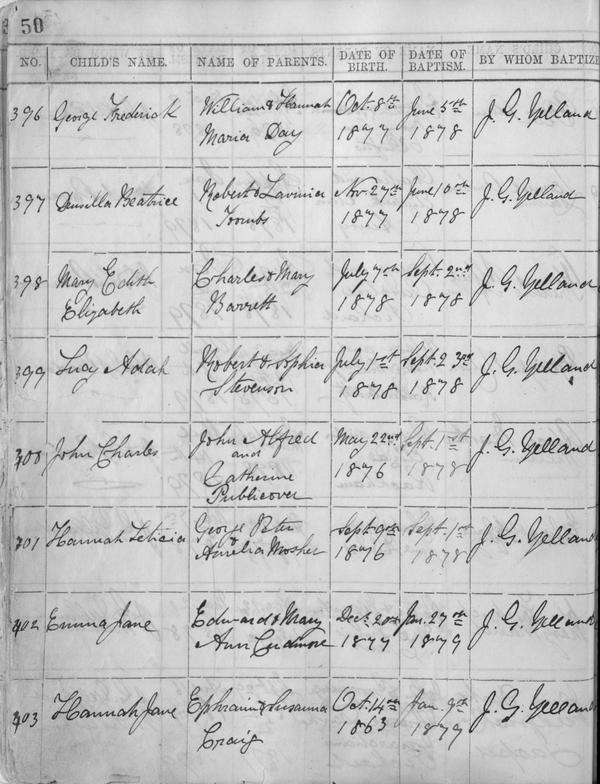 50
NO. CHILD'S NAME. NAME OF PARENTS. DATE OF BIRTH. DATE OF BAPTISM. BY WHOM BAPTIZE
396 George Frederick William & Hannah Oct. 8th June 5th J. G. Yelland
Maria Day 1877 1878
397 Drusilla Beatrice Robert & Lavinia Nov. 27th June 10th J. G. Yelland
Toombs 1877 1878
398 Mary Edith Charles & Mary July 7th Sept. 2nd J. G. Yelland
Elizabeth Barrett 1878 1878
399 Lucy Adah Robert & Sophia July 1st Sept. 23rd J. G. Yelland
Stevenson 1878 1878
John Charles John Alfred May 22nd Sept. 1st J. G. Yelland
and 1876 1878
Catherine
Publicover
401 Hannah Leticia George Peter Sept. 9th Sept. 1st J. G. Yelland
& Amelia Mosher 1876 1878
402 Emma Jane Edward & Mary Dec. 20th Jan. 27th J. G. Yelland
Ann Cudmore 1877 1879
403 Hannah Jane Ephraim & Susanna Oct. 14th Jan. 9th J. G. Yelland
Craig 1863 1879